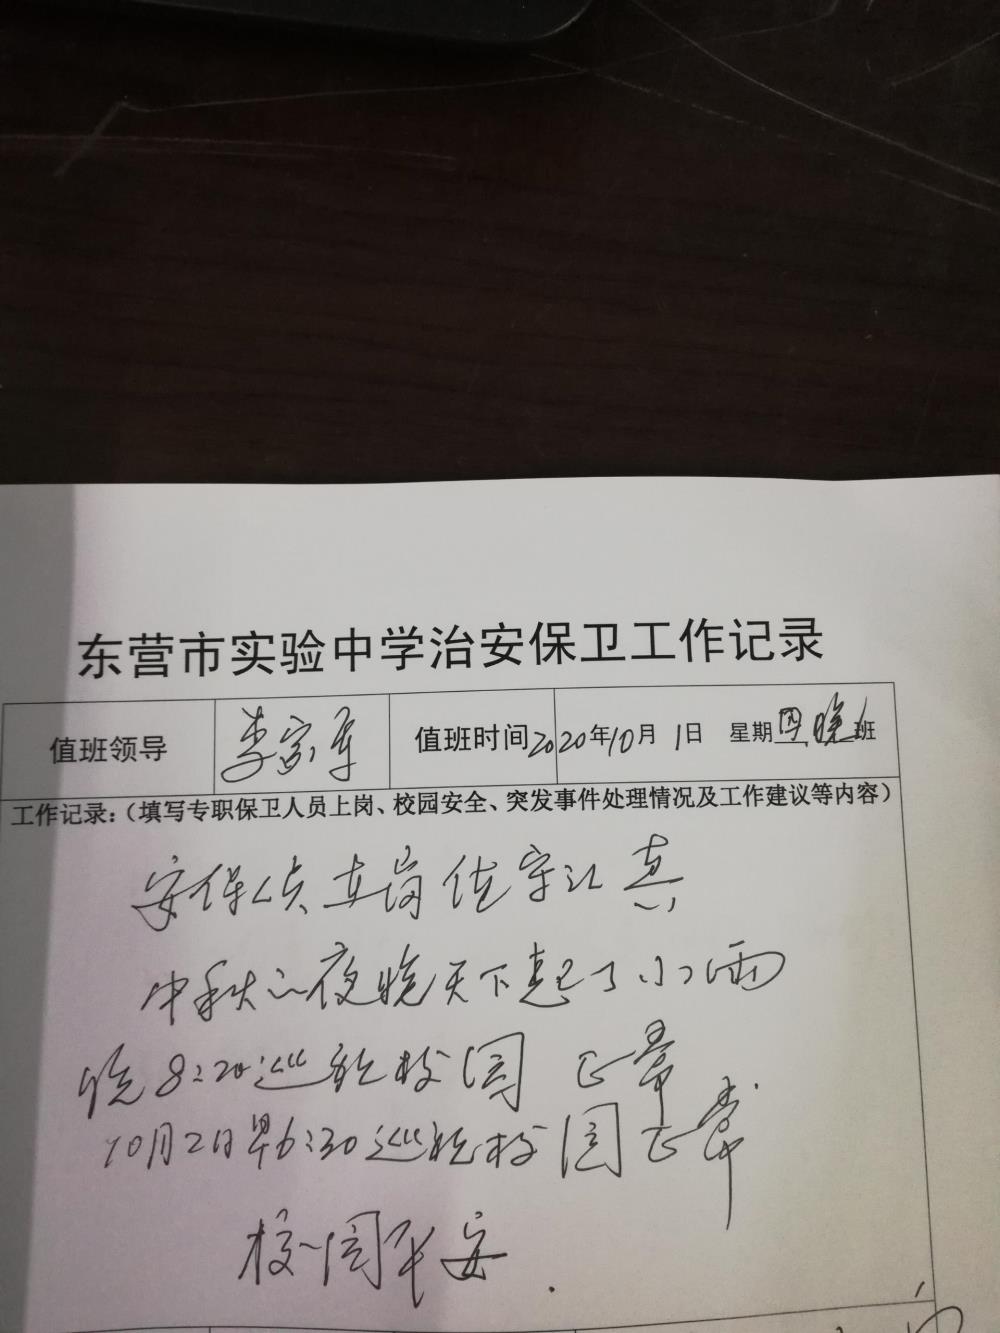 东营市实验中学治安保卫工作记录
值班领导 李家军 值班时间 2020年10月1日 星期四晚班
工作记录:(填写专职保卫人员上岗、校园安全、突发事件处理情况及工作建议等内容)
安保人员在岗值守认真
中秋之夜晚天下起了小雨
晚8:20巡视校园 正常
10月2日早6:30巡视校园正常
校园平安.